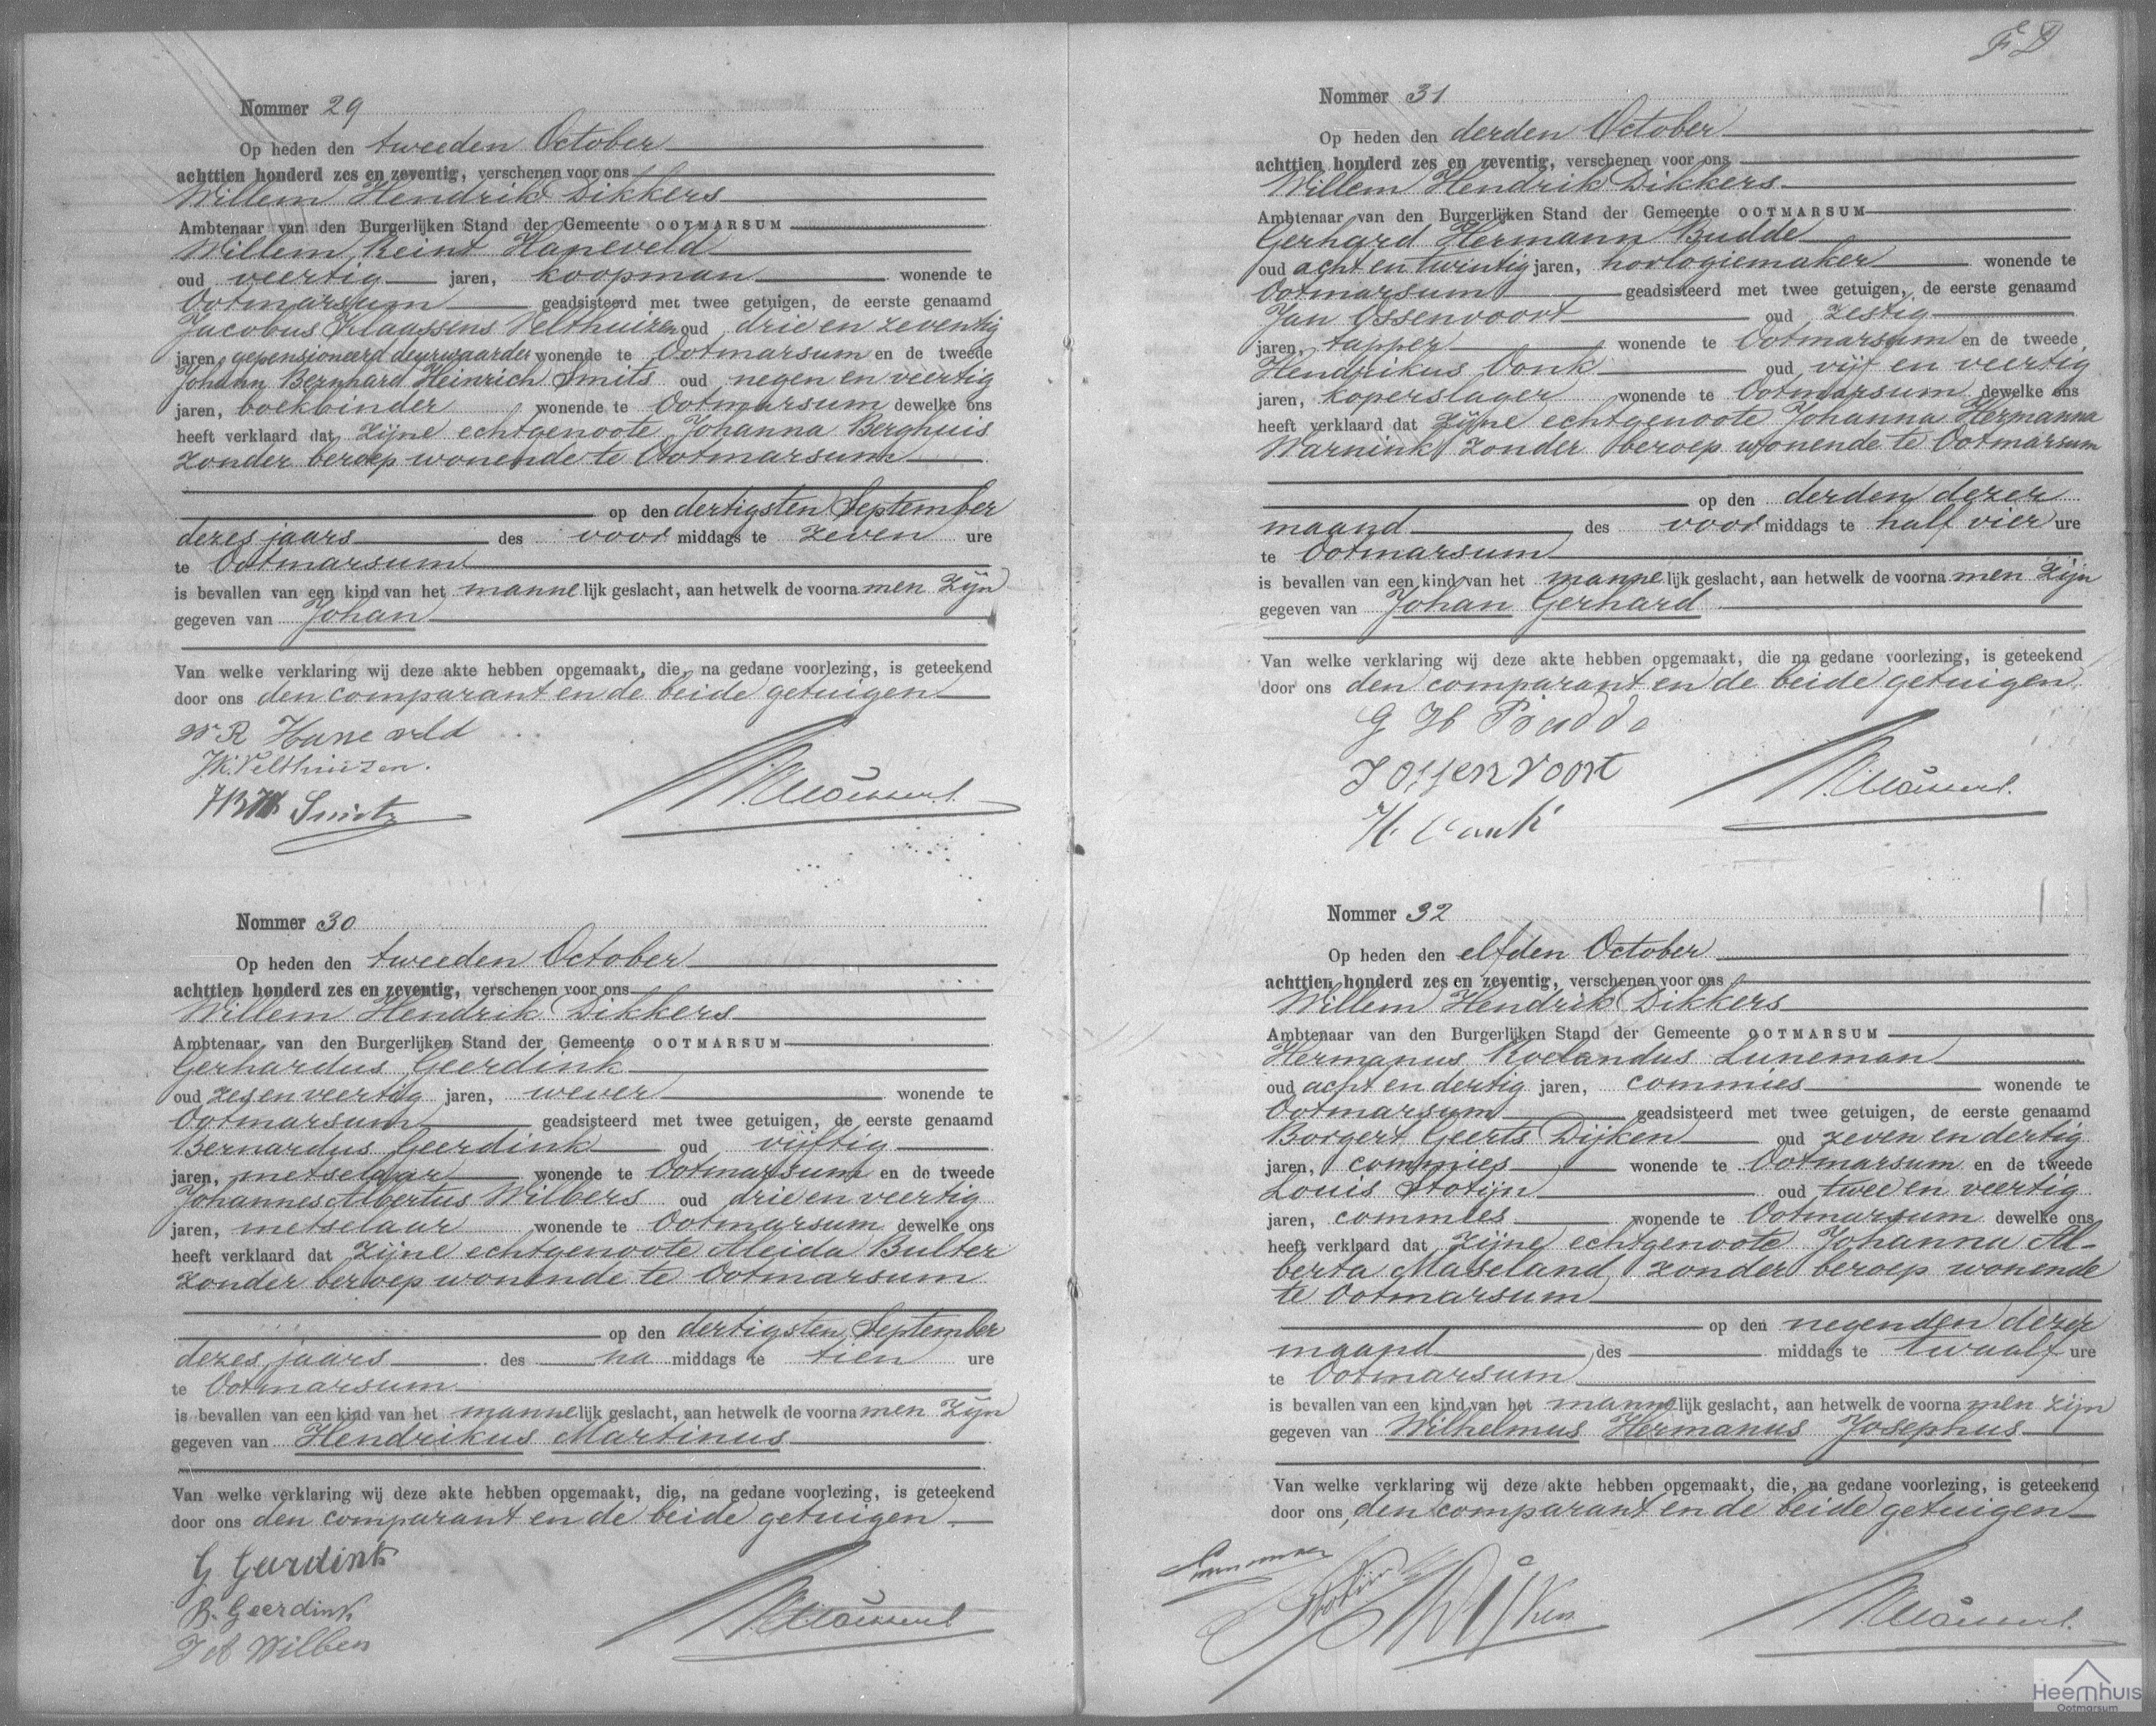 Nommer 29
Op heden den tweeden October
achttien honderd zes en zeventig, verschenen voor ons
Willem Hendrik Dikkers
Ambtenaar van den Burgerlijken Stand der Gemeente OOTMARSUM
Willem Reint Haneveld
oud veertig jaren, koopman wonende te
Ootmarsum geadsisteerd met twee getuigen, de eerste genaamd
Jacobus Klaassens Velthuizen oud drie en zeventig
jaren, gepensioneerd deurwaarder wonende te Ootmarsum en de tweede
Johann Bernhard Heinrich Smits oud negen en veertig
jaren, boekbinder wonende te Ootmarsum dewelke ons
heeft verklaard dat zijne echtgenoote Johanna Berghuis
zonder beroep wonende te Ootmarsum
op den dertigsten September
dezes jaars des voor middags te zeven ure
te Ootmarsum
is bevallen van een kind van het mannelijk geslacht, aan hetwelk de voornamen zijn
gegeven van Johan
Van welke verklaring wij deze akte hebben opgemaakt, die, na gedane voorlezing, is geteekend
door ons den comparant en de beide getuigen
W R Haneveld
J.K. Velthuizen.
JBH Smits
Nommer 30
Op heden den tweeden October
achttien honderd zes en zeventig, verschenen voor ons
Willem Hendrik Dikkers
Ambtenaar van den Burgerlijken Stand der Gemeente OOTMARSUM
Gerhardus Geerdink
oud zes en veertig jaren, wever wonende te
Ootmarsum geadsisteerd met twee getuigen, de eerste genaamd
Bernardus Geerdink oud vijftig
jaren, metselaar wonende te Ootmarsum en de tweede
Johannes Albertus Wilbers oud drie en veertig
jaren, metselaar wonende te Ootmarsum dewelke ons
heeft verklaard dat zijne echtgenoote Aleida Bulter
zonder beroep wonende te Ootmarsum
op den dertigsten September
dezes jaars des na middags te tien ure
te Ootmarsum
is bevallen van een kind van het mannelijk geslacht, aan hetwelk de voornamen zijn
gegeven van Hendrikus Martinus
Van welke verklaring wij deze akte hebben opgemaakt, die, na gedane voorlezing, is geteekend
door ons den comparant en de beide getuigen
G Geerdink
B. Geerdink
J A Wilbers
Nommer 31
Op heden den derden October
achttien honderd zes en zeventig, verschenen voor ons
Willem Hendrik Dikkers
Ambtenaar van den Burgerlijken Stand der Gemeente OOTMARSUM
Gerhard Hermann Budde
oud acht en twintig jaren, horlogiemaker wonende te
Ootmarsum geadsisteerd met twee getuigen, de eerste genaamd
Jan Ossenvoort oud zestig
jaren, tapper wonende te Ootmarsum en de tweede
Hendrikus Vonk oud vijf en veertig
jaren, koperslager wonende te Ootmarsum dewelke ons
heeft verklaard dat zijne echtgenoote Johanna Hermanna
Warnink zonder beroep wonende te Ootmarsum
op den derden dezer
maand des voor middags te half vier ure
te Ootmarsum
is bevallen van een kind van het mannelijk geslacht, aan hetwelk de voornamen zijn
gegeven van Johan Gerhard
Van welke verklaring wij deze akte hebben opgemaakt, die na gedane voorlezing, is geteekend
door ons den comparant en de beide getuigen
G H Budde
J Ossenvoort
H. Vonk
Nommer 32
Op heden den elfden October
achttien honderd zes en zeventig, verschenen voor ons
Willem Hendrik Dikkers
Ambtenaar van den Burgerlijken Stand der Gemeente OOTMARSUM
Hermanus Roelandus Luneman
oud acht en dertig jaren, commies wonende te
Ootmarsum geadsisteerd met twee getuigen, de eerste genaamd
Borgert Geerts Dijken oud zeven en dertig
jaren, commies wonende te Ootmarsum en de tweede
Louis Stotijn oud twee en veertig
jaren, commies wonende te Ootmarsum dewelke ons
heeft verklaard dat zijne echtgenoote Johanna Al-
berta Maseland, zonder beroep wonende
te Ootmarsum
op den negenden dezer
maand des middags te twaalf ure
te Ootmarsum
is bevallen van een kind van het mannelijk geslacht, aan hetwelk de voornamen zijn
gegeven van Wilhelmus Hermanus Josephus
Van welke verklaring wij deze akte hebben opgemaakt, die, na gedane voorlezing, is geteekend
door ons, den comparant en de beide getuigen
Luneman
Stotijn
Dijken
Heemhuis
Ootmarsum